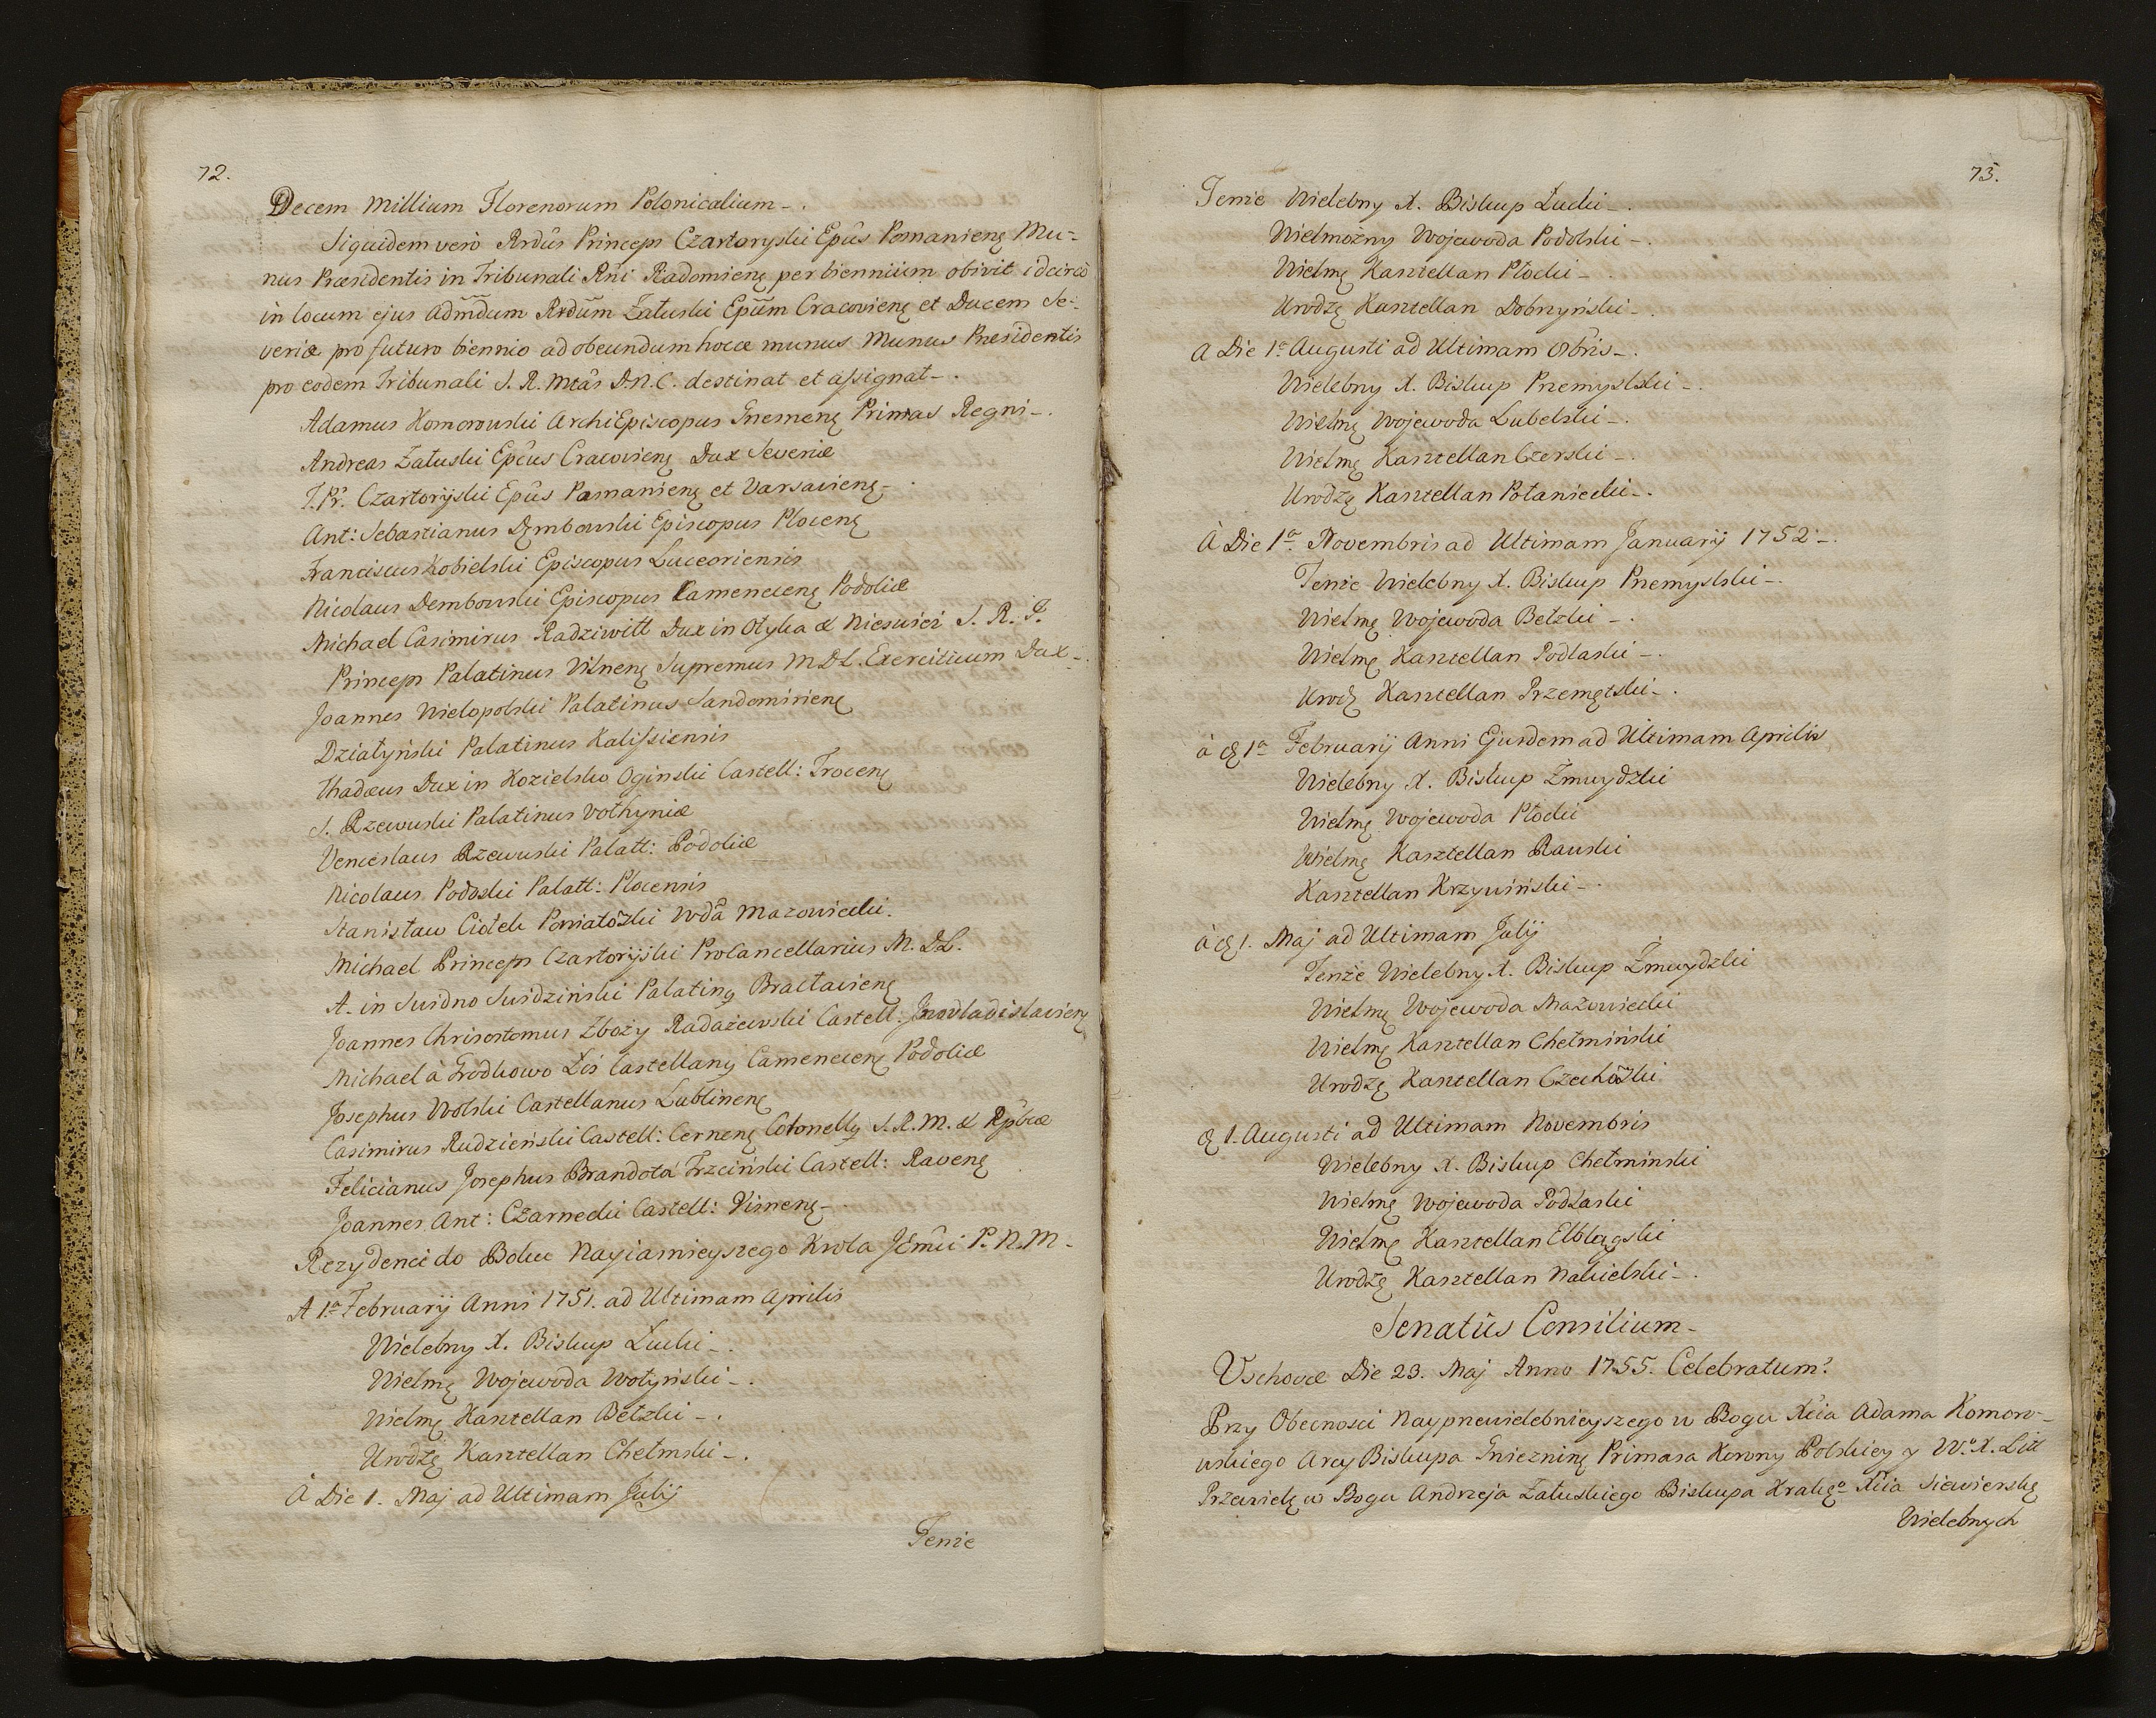 72.
Decem Millium Florenorum Polonicalium -.
Siquidem vero Rndus Princeps Czartoryski Epûs Posnanienę Mu=
nus Præsidentis in Tribunali Rńi Radomienę per biennium obivit idcircò
in locum ejus adm̃dum Rndũm Załuski Epũm Cracovienę et Ducem Se=
veriæ pro futuro biennio ad obeundum hocce munus Munus Præsidentis
pro eodem Tribunali S. R. Mtâs D.N.C. destinat et assignat -.
Adamus Komorowski ArchiEpiscopus Gnesnenę Primas Regni -.
Andreas Załuski Epĉus Cracovienę Dux Severiæ
T. Pr. Czartoryski Epûs Posnanienę et Varsavienę -.
Ant: Sebastianus Dębowski Episcopus Plocenę
Franciscus Kobielski Episcopus Luceoriensis
Nicolaus Dembowski Episcopus Camenecenę Podoliæ
Michael Casimirus Radziwiłł Dux in Otyka & Nieswicz S. R. J.
Princeps Palatinus Vilnenę Supremus M.D.L. Exercituum Dux -.
Joannes Wielopolski Palatinus Sandomirienę
Działyński Palatinus Kalissiensis
Thadæus Dux in Kozielsko Oginski Castell: Trocenę
S. Rzewuski Palatinus Volhyniæ
Venceslaus Rzewuski Palatt: Podoliæ
Nicolaus Podoski Palatt: Plocensis
Stanisław Ciołek Poniatõski Wdâ Mazowiecki.
Michael Princeps Czartoryski ProCancellarius M. D.L.
A. in Suidno Suidziński Palatinę Bracłavienę
Joannes Chrisostomus Zboży Radażewski Castell. Jnovladislavienę
Michael à Grodkowo Łoś Castellanę Camenecenę Podoliæ
Josephus Wolski Castellanus Lublinenę
Casimirus Rudzieński Castell: Cernenę Colonellę S. R. M. & Rpb̃cæ
Felicianus Josephus Brandota Trzciński Castell: Ravenę
Joannes Ant: Czarnecki Castell: Visnenę -.
Rezydenci do Boku Nayiasnieyszego Krola JEmĉi P. N. M -
A 1ª Februarij Anni 1751. ad Ultimam Aprilis
Wielebny X. Biskup Łucki -.
Wielmę Wojewoda Wołyński -.
Wielmę Kasztellan Bełzki -.
Urodzę Kasztellan Chełmski -.
À Die 1. Maj ad Ultimam Julij
Tenże
73.
Tenże Wielebny X. Biskup Łucki -.
Wielmożny Wojewoda Podolski -.
Wielmę Kasztellan Płocki -.
Urodzę Kasztellan Dobrzyński -.
A Die 1ª Augusti ad Ultimam 8bris -.
Wielebny X. Biskup Przemyslski -.
Wielmę Wojewoda Lubelski -.
Wielmę Kasztellan Czerski -.
Urodzę Kasztellan Połaniecki -.
À Die 1ª Novembris ad Ultimam Januarij 1752 -.
Tenże Wielebny X. Biskup Przemyslski -.
Wielmę Wojewoda Bełzki -.
Wielmę Kasztellan Podlaski -.
Urodę Kasztellan Przemętski -.
à ꝺ 1ª Februarij Anni Ejusdem ad Ultimam Aprilis
Wielebny X. Biskup Żmuydzki
Wielmę Wojewoda Płocki
Wielmę Kasztellan Rawski
Kasztellan Krzywiński -.
à ꝺ 1. Maj ad Ultimam Julij
Tenże Wielebny X. Biskup Żmuydzki
Wielmę Wojewoda Mazowiecki
Wielmę Kasztellan Chełmiński
Urodzę Kasztellan Czechõzki
ꝺ 1. Augusti ad Ultimam Novembris
Wielebny X. Biskup Chełminski
Wielmę Wojewoda Podlaski
Wielmę Kasztellan Elblągski
Urodzę Kasztellan Nakielski -.
Senatûs Consilium -
Vschovæ Die 23. Maj Anno 1755. Celebratum.
Przy Obecnosci Nayprzewielebnieyszego w Bogu Xcia Adama Komoro-
wskiego Arcy Biskupa Gniezninę Primasa Korony Polskiey y W.º X. Litt
Przewielę w Bogu Andrzeja Załuskiego Biskupa Krakę.º Xcia Siewierskę
Wielebnych